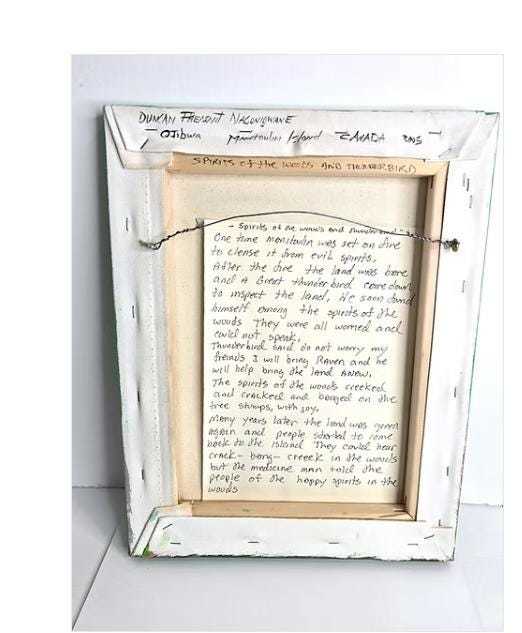 DUNCAN
Ojibwa Manitoulin Island CANADA
SPIRITS of the WOODS AND THUNDERBIRD
- Spirits of the woods and thunderbird -
One time manitoulin was set on fire
to clense it from evil spirits.
After the fire the land was bare
and A Great thunderbird came down
to inspect the land, He soon found
himself among the spirits of the
woods They were all worried and
could not speak,
Thunderbird said do not worry my
freinds I will bring Raven and he
will help bring the land ANEW.
The spirits of the woods creeked
and cracked and banged on the
tree stumps, with joy.
Many years later the land was green
again and people started to come
back to the island They could hear
crack - bang - creeek in the woods
but the medicine man told the
people of the happy spirits in the
woods